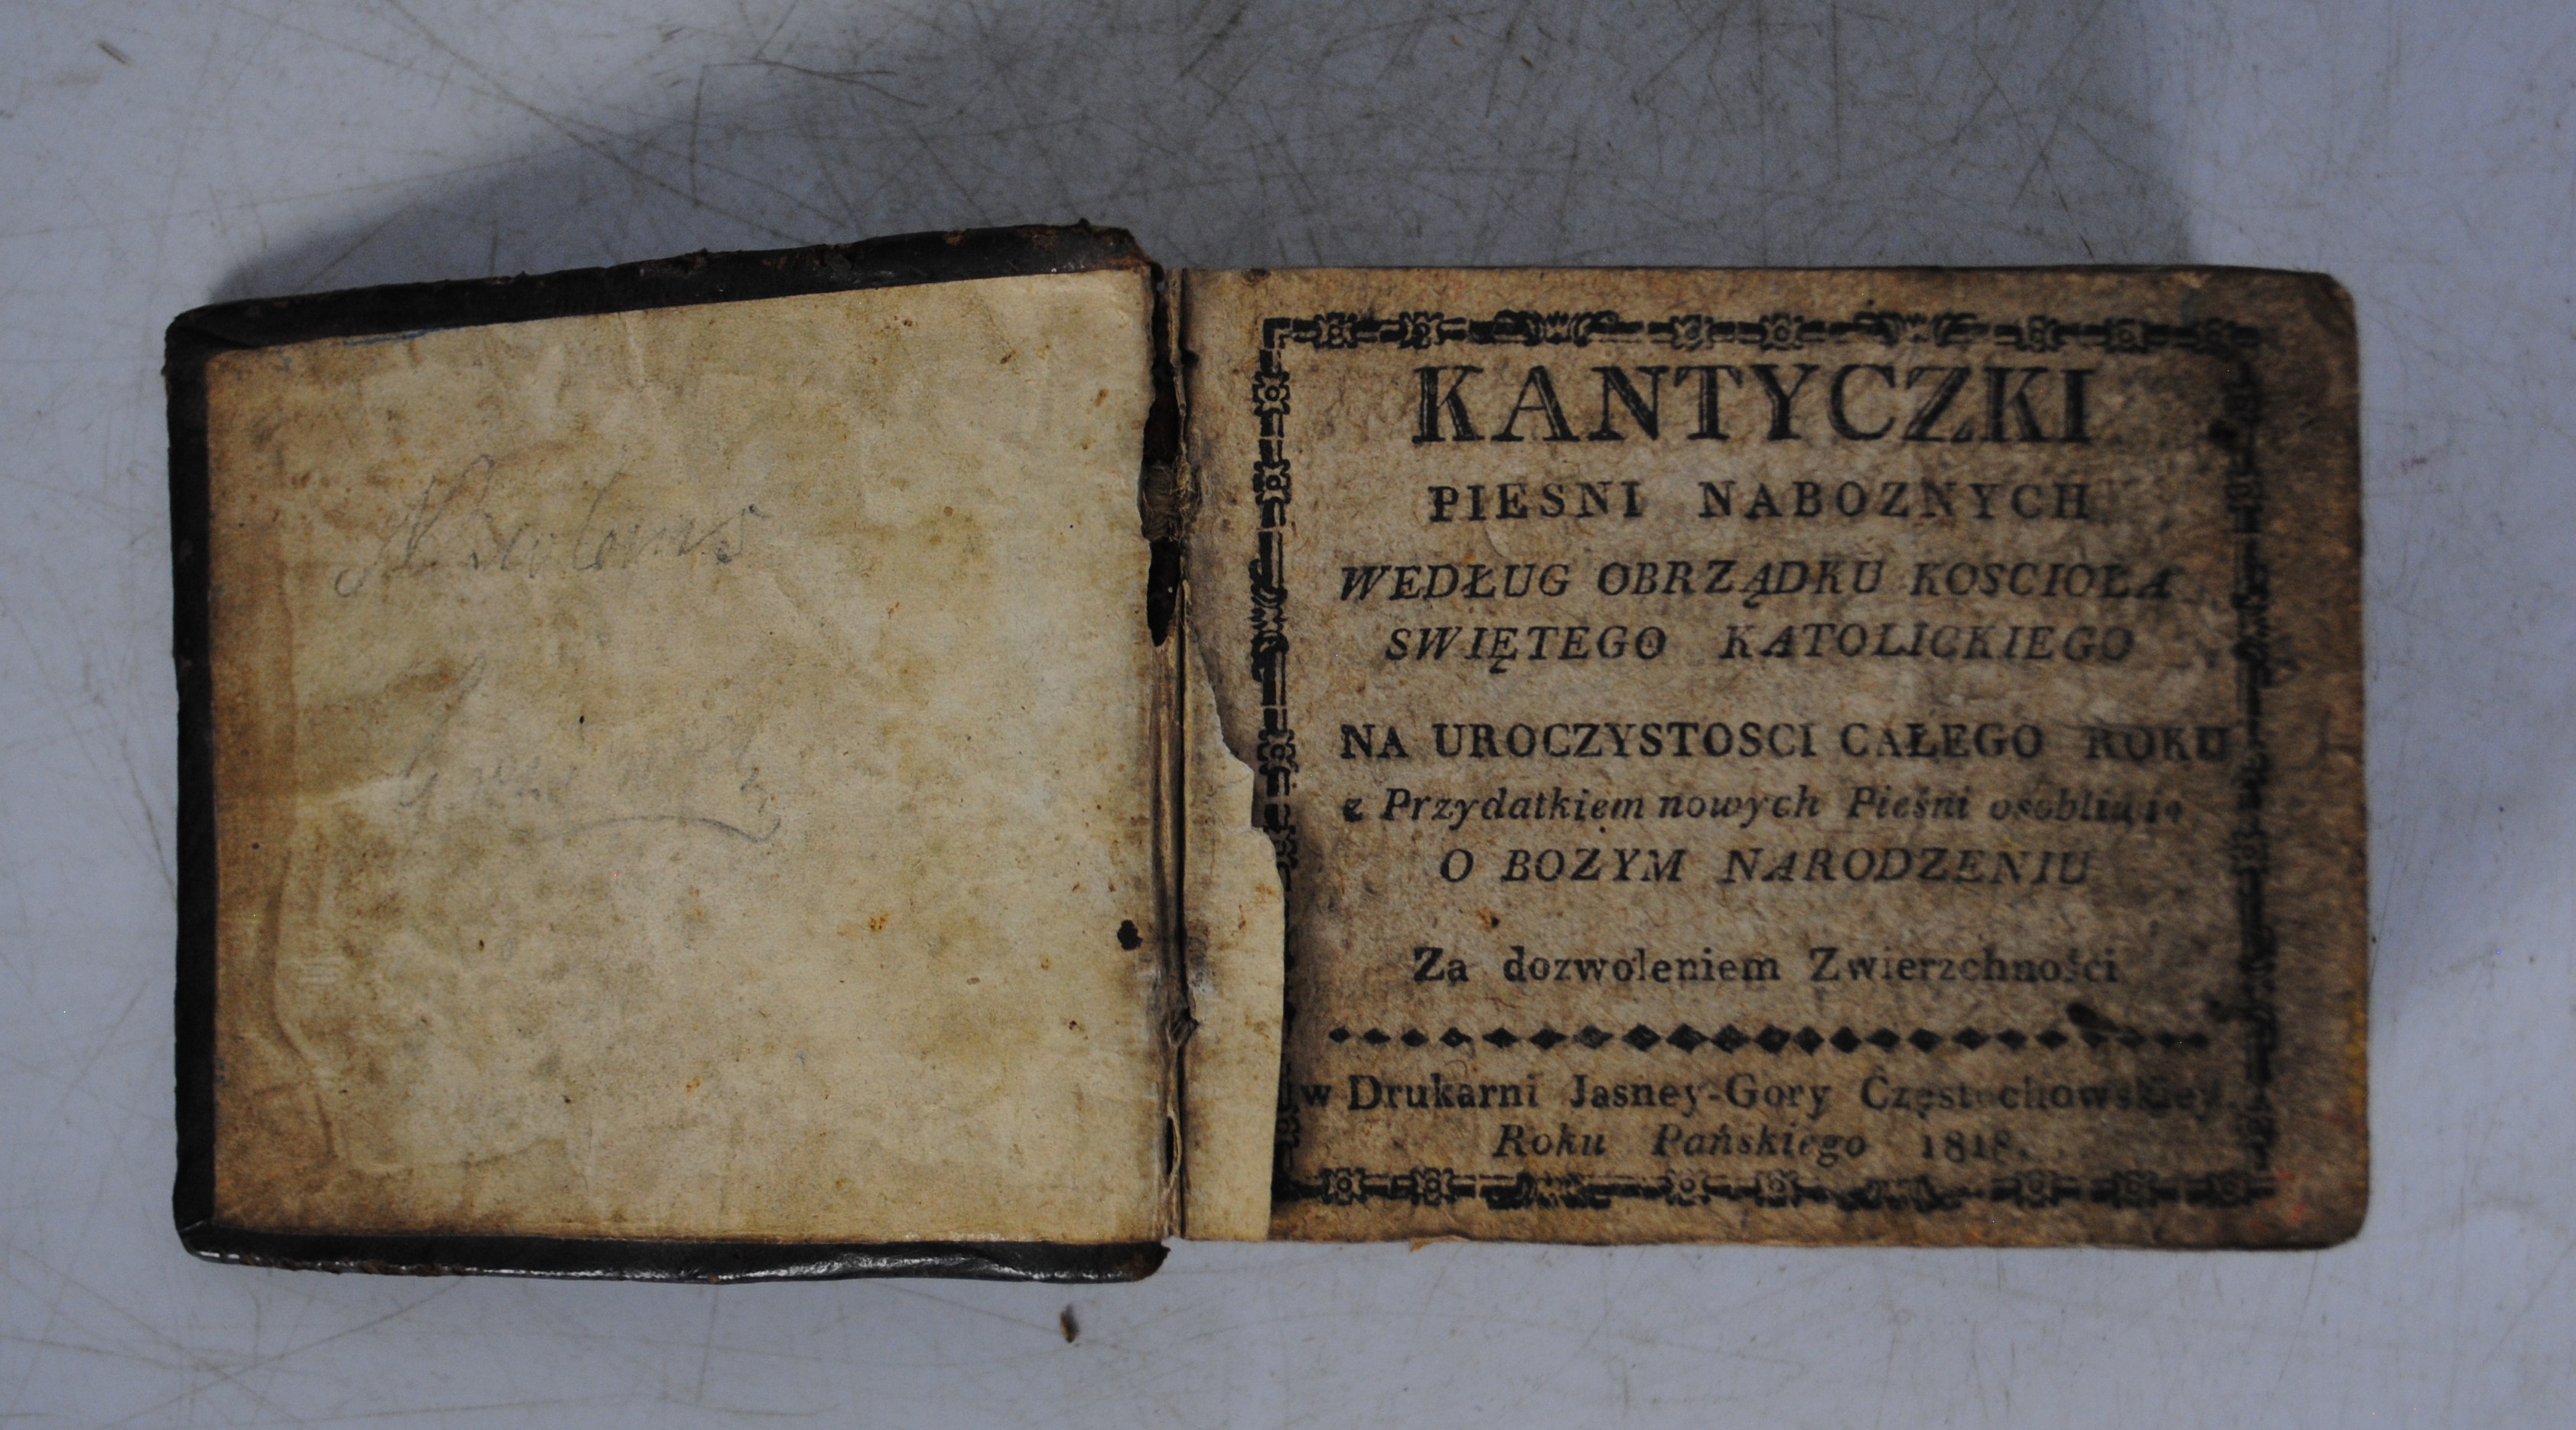 KANTYCZKI
PIESNI NABOZNYCH
WEDŁUG OBRZĄDKU KOSCIOŁA
SWIĘTEGO KATOLICKIEGO
NA UROCZYSTOSCI CAŁEGO ROKU
z Przydatkiem nowych Pieśni osobliwie
O BOZYM NARODZENIU
Za dozwoleniem Zwierzchności
w Drukarni Jasney-Gory Częstochowskiey.
Roku Pańskiego 1818.